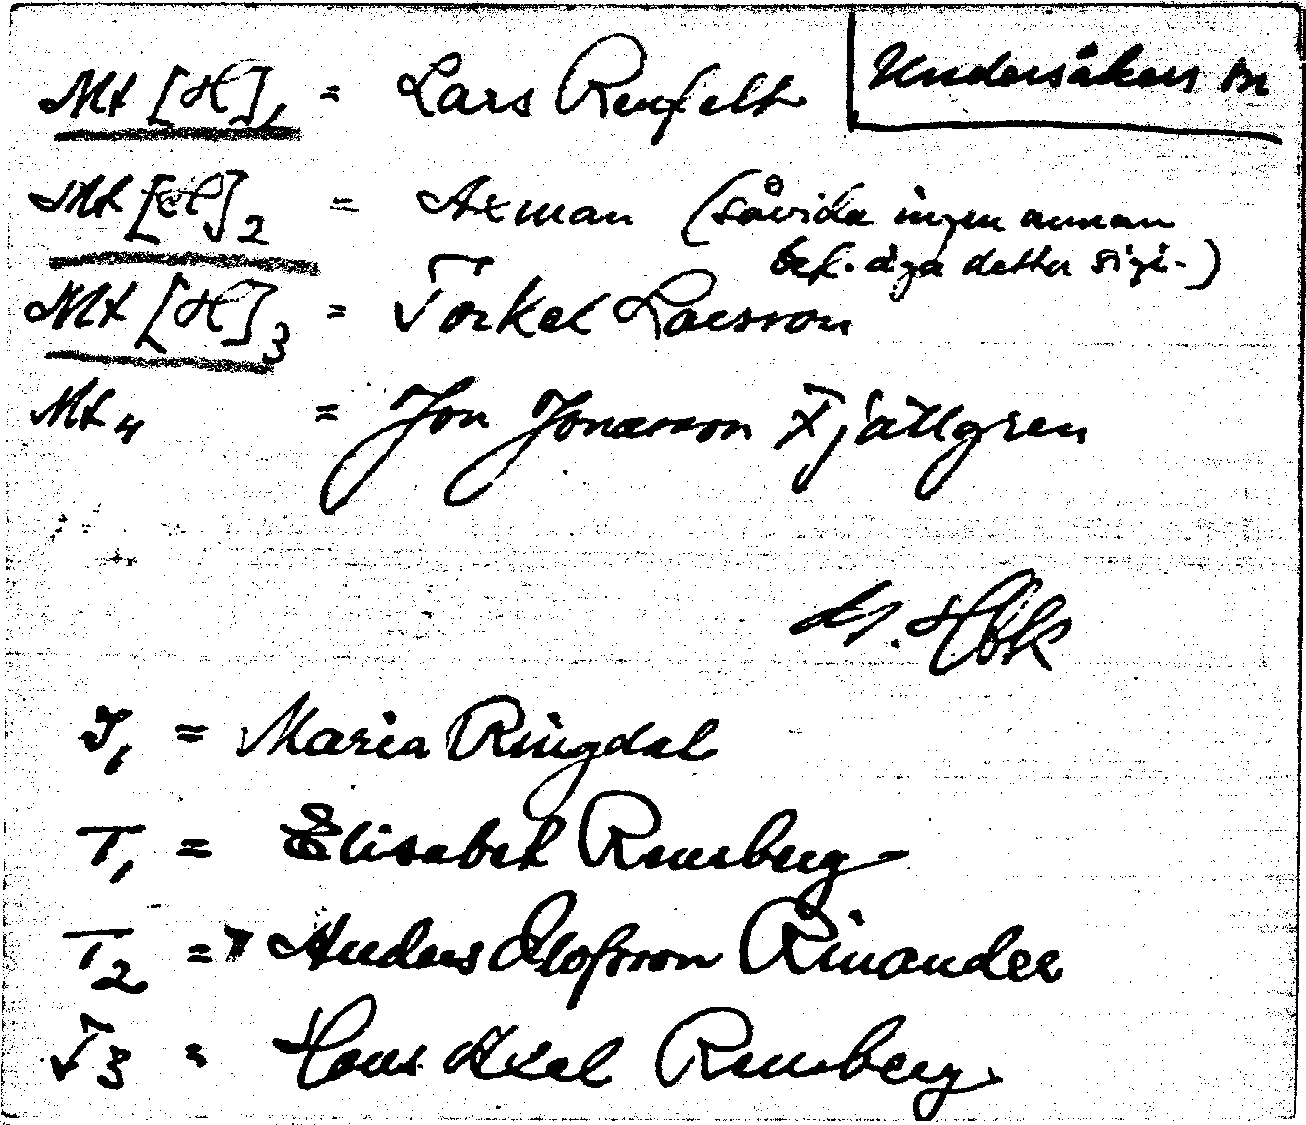 Undersöken om
Mt [H]1 = Lars Renfelt
Mt [H]2 = Axman (såvida ingen annan
bef. äga detta sig.)
Mt [H]3 = Torkel Larsson
Mt4 = Jon Jonasson Fjällgren
H. Hök
J1 = Maria Ringdal
T1 = Elisabet Rensberg
T2 = Anders Olofsson Rinander
T3 = Hans Axel Rensberg